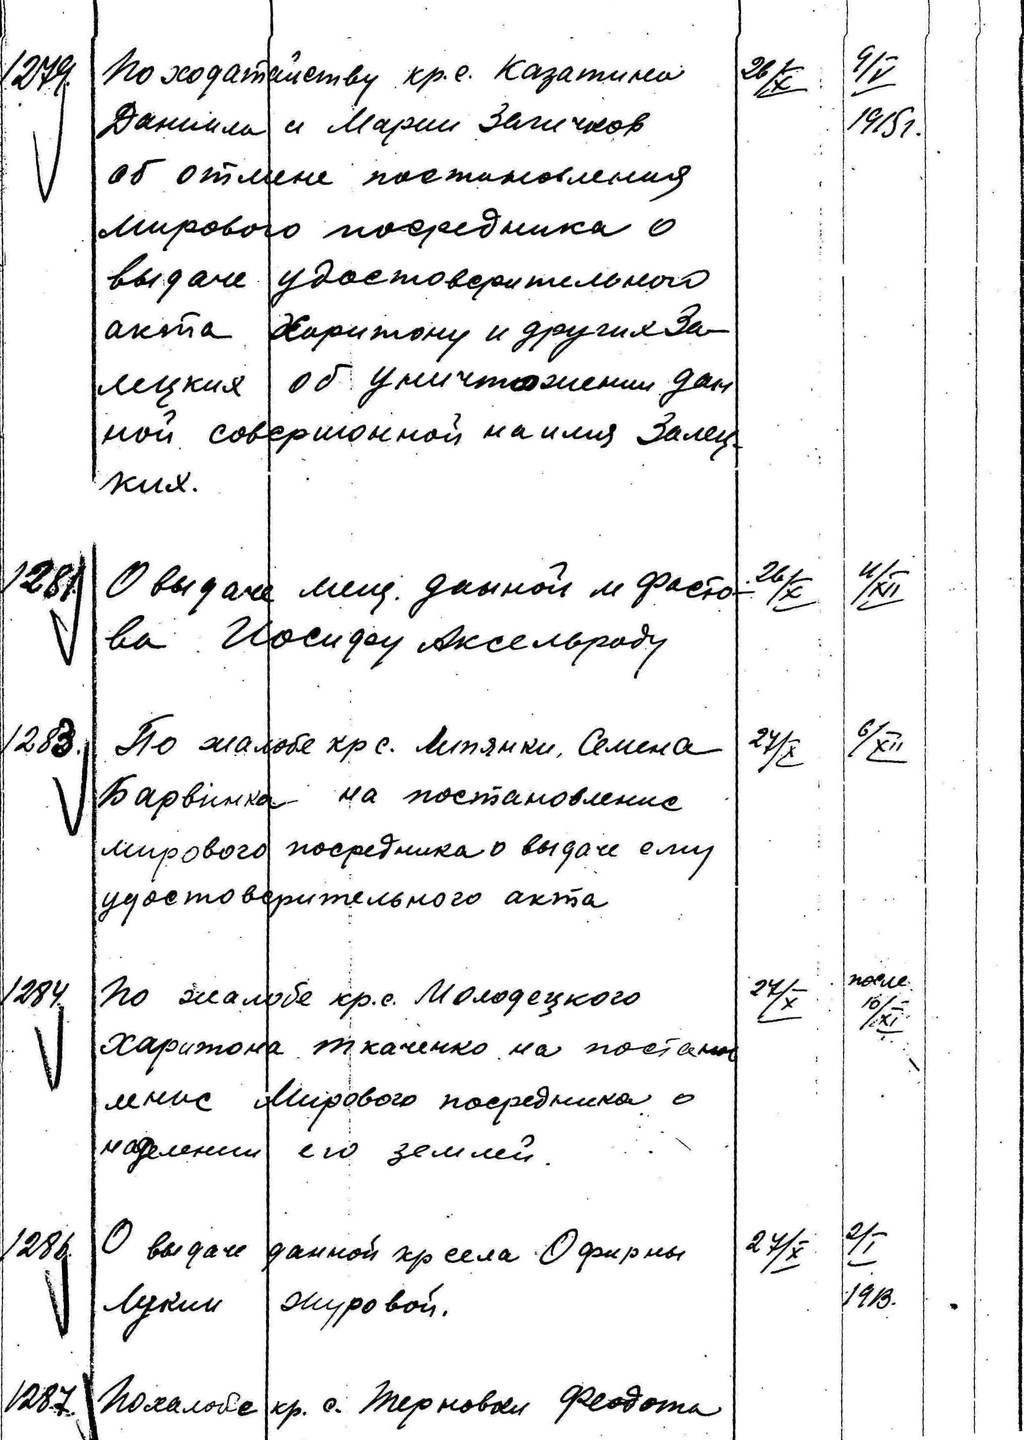 1279. По ходатайству кр. с. Казатина 26/X 9/V
Даниила и Марии Загичков 1915 г.
об отмене постановления
мирового посредника о
выдаче удостоверительного
акта Харитону и других За-
лецких об уничтожении дан
ной совершонной на имя Залец-
ких.
1281. О выдаче мещ. данной м Фасто- 26/X 4/XII
ва Иосифу Аксельроду
1283. По жалобе кр с. Липянки, Семена 27/X 6/XII
Барвинка на постановление
мирового посредника о выдаче ему
удостоверительного акта
1284. По жалобе кр. с. Молодецкого 27/X после
Харитона Ткаченко на постанов 10/XI
ление Мирового посредника о
наделении его землей.
1286. О выдаче данной кр села Офирны 27/X 2/I
Лукии Журовой. 1913.
1287. По жалобе кр. с. Терновки Феодота